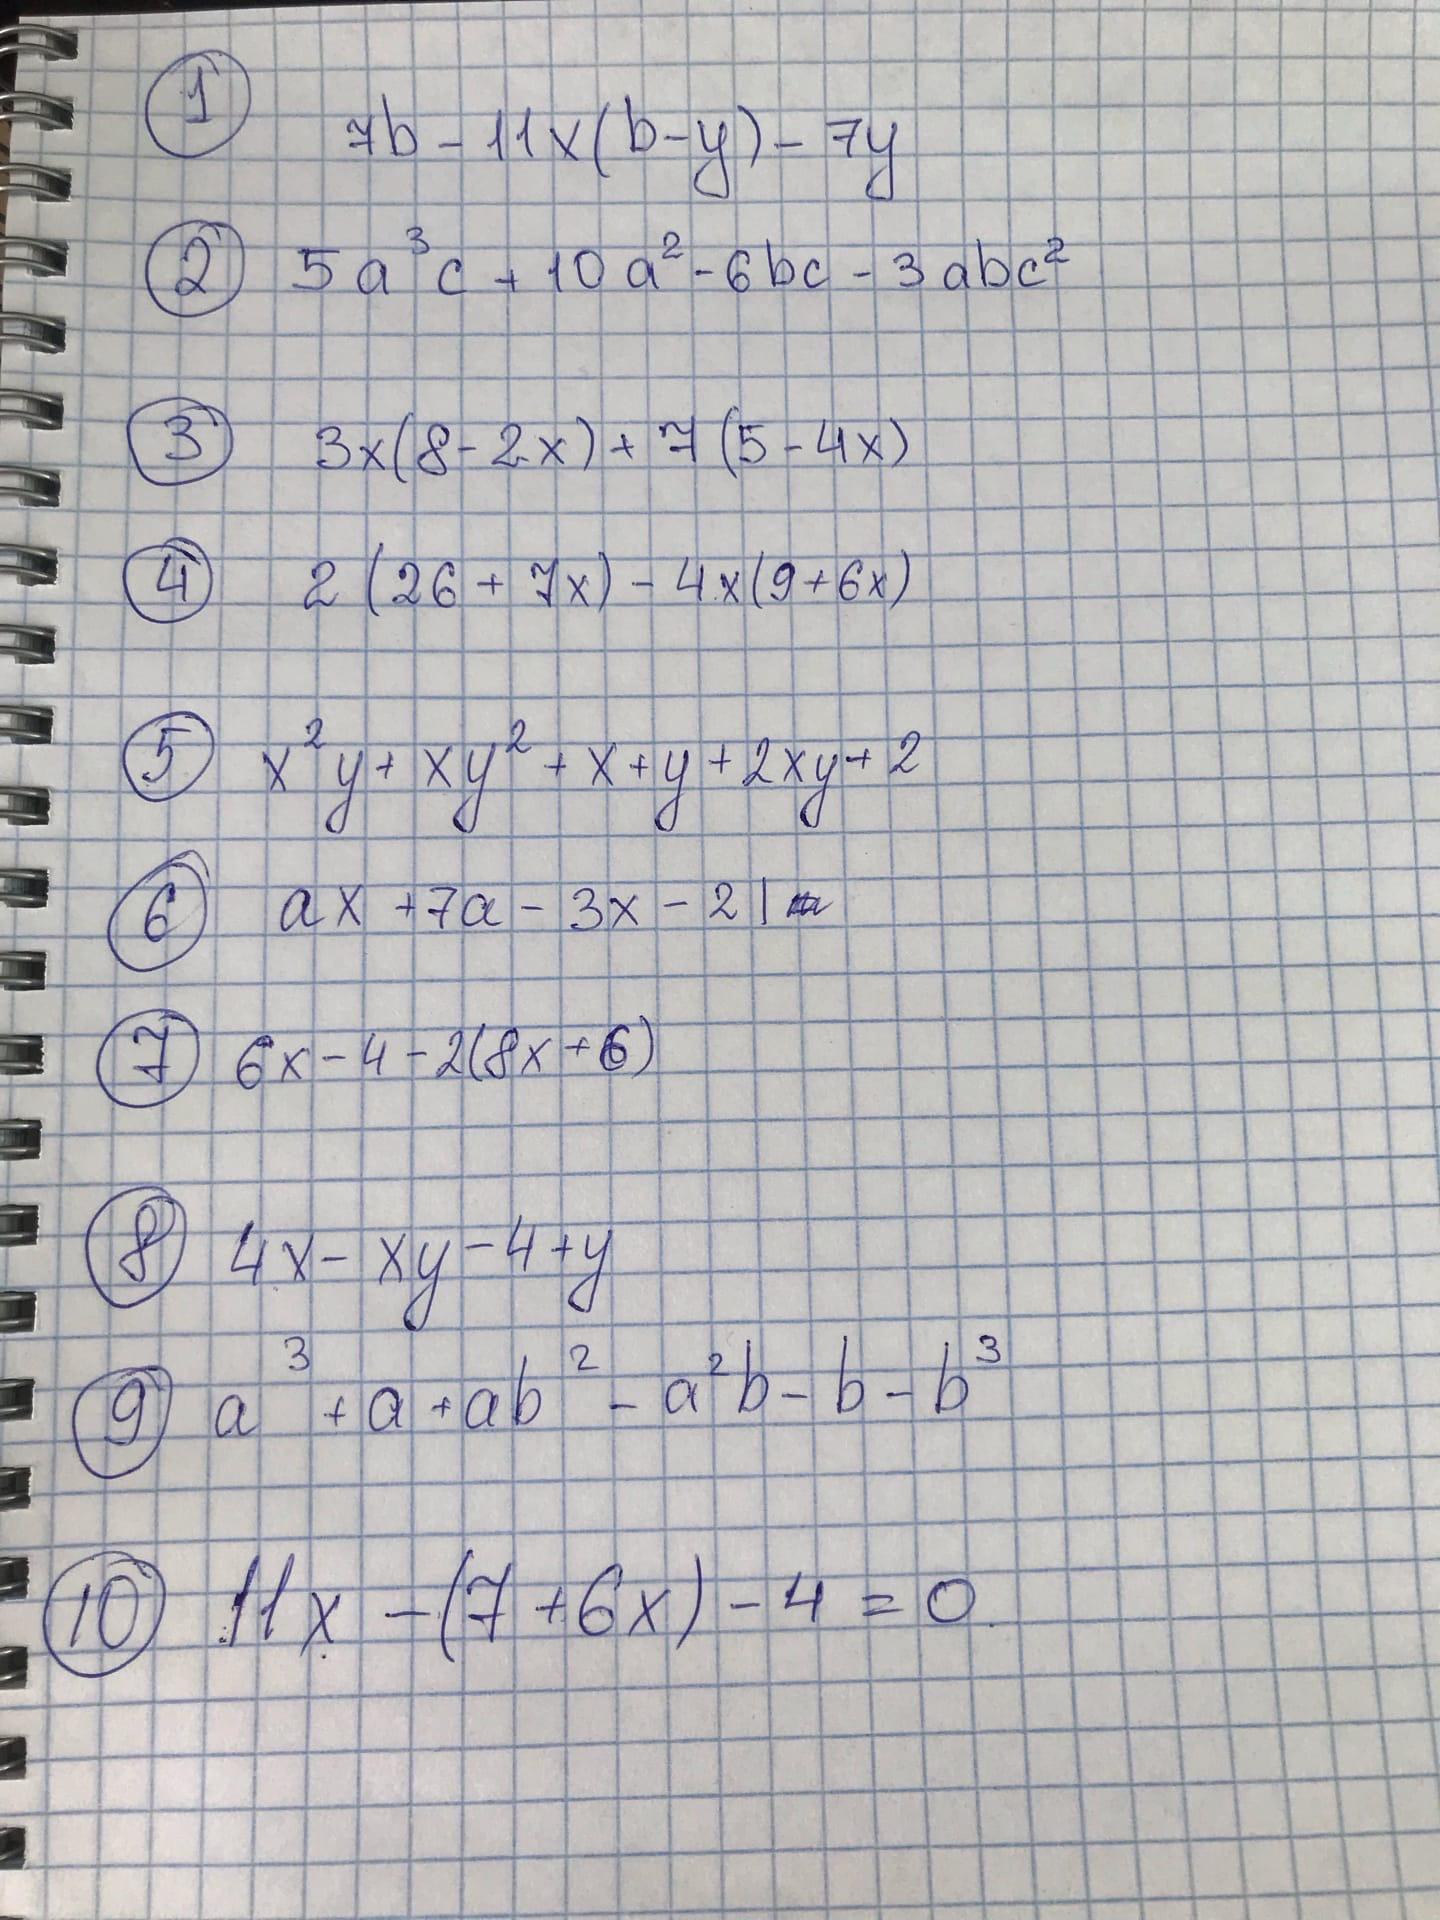 1 7b - 11x(b-y) - 7y
2 5a³c + 10a² - 6bc - 3abc²
3 3x(8-2x) + 7(5-4x)
4 2(26 + 7x) - 4x(9+6x)
5 x²y + xy² + x + y + 2xy + 2
6 ax + 7a - 3x - 21
7 6x - 4 - 2(8x + 6)
8 4x - xy - 4 + y
9 a³ + a + ab² - a²b - b - b³
10 11x - (7 + 6x) - 4 = 0